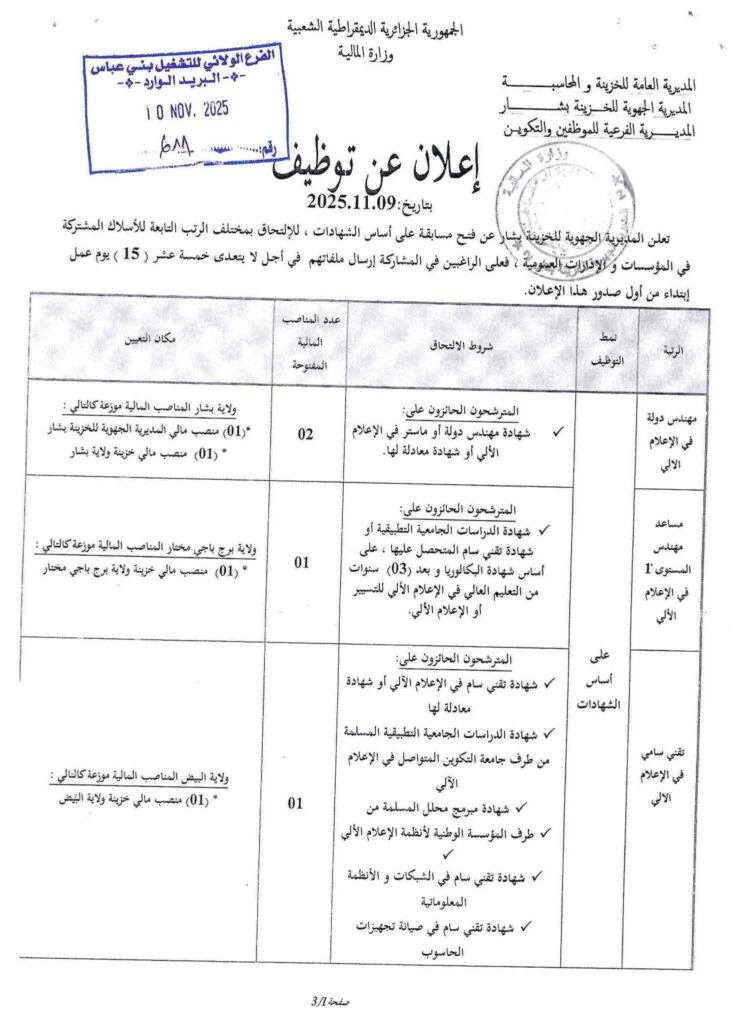 الجمهورية الجزائرية الديمقراطية الشعبية
وزارة المالية
المديرية العامة للخزينة و المحاسبة
المديرية الجهوية للخزينة بشار
المديرية الفرعية للموظفين والتكوين
الفرع الولائي للتشغيل بني عباس
-❖- البريد الوارد -❖-
10 NOV. 2025
رقم:
وزارة المالية
إعلان عن توظيف
بتاريخ:2025.11.09
تعلن المديرية الجهوية للخزينة بشار عن فتح مسابقة على أساس الشهادات ، للإلتحاق بمختلف الرتب التابعة للأسلاك المشتركة
في المؤسسات و الإدارات العمومية ، فعلى الراغبين في المشاركة إرسال ملفاتهم في أجل لا يتعدى خمسة عشر ( 15 ) يوم عمل
إبتداء من أول صدور هذا الإعلان.
الرتبة
نمط
التوظيف
شروط الالتحاق
عدد المناصب
المالية
المفتوحة
مكان التعيين
مهندس دولة
في الإعلام
الالي
على
أساس
الشهادات
المترشحون الحائزون على:
✓ شهادة مهندس دولة أو ماستر في الإعلام
الألي أو شهادة معادلة لها.
02
ولاية بشار المناصب المالية موزعة كالتالي :
*(01) منصب مالي المديرية الجهوية للخزينة بشار
* (01) منصب مالي خزينة ولاية بشار
مساعد
مهندس
المستوى 1
في الإعلام
الألي
المترشحون الحائزون على:
✓ شهادة الدراسات الجامعية التطبيقية أو
شهادة تقني سام المتحصل عليها ، على
أساس شهادة البكالوريا و بعد (03) سنوات
من التعليم العالي في الإعلام الألي للتسيير
أو الإعلام الألي.
01
ولاية برج باجي مختار المناصب المالية موزعة كالتالي :
* (01) منصب مالي خزينة ولاية برج باجي مختار
تقني سامي
في الإعلام
الالي
المترشحون الحائزون على:
✓ شهادة تقني سام في الإعلام الآلي أو شهادة
معادلة لها
✓ شهادة الدراسات الجامعية التطبيقية المسلمة
من طرف جامعة التكوين المتواصل في الإعلام
الآلي
✓ شهادة مبرمج محلل المسلمة من
✓ طرف المؤسسة الوطنية لأنظمة الإعلام الألي
✓
✓ شهادة تقني سام في الشبكات و الأنظمة
المعلوماتية
✓ شهادة تقني سام في صيانة تجهيزات
الحاسوب
01
ولاية البيض المناصب المالية موزعة كالتالي :
* (01) منصب مالي خزينة ولاية البيض
صفحة 3/1